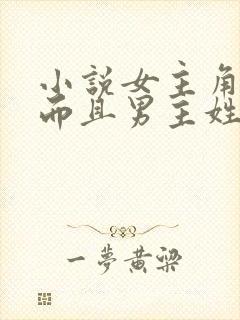 小說女主角
而且男主姓
一夢黃梁